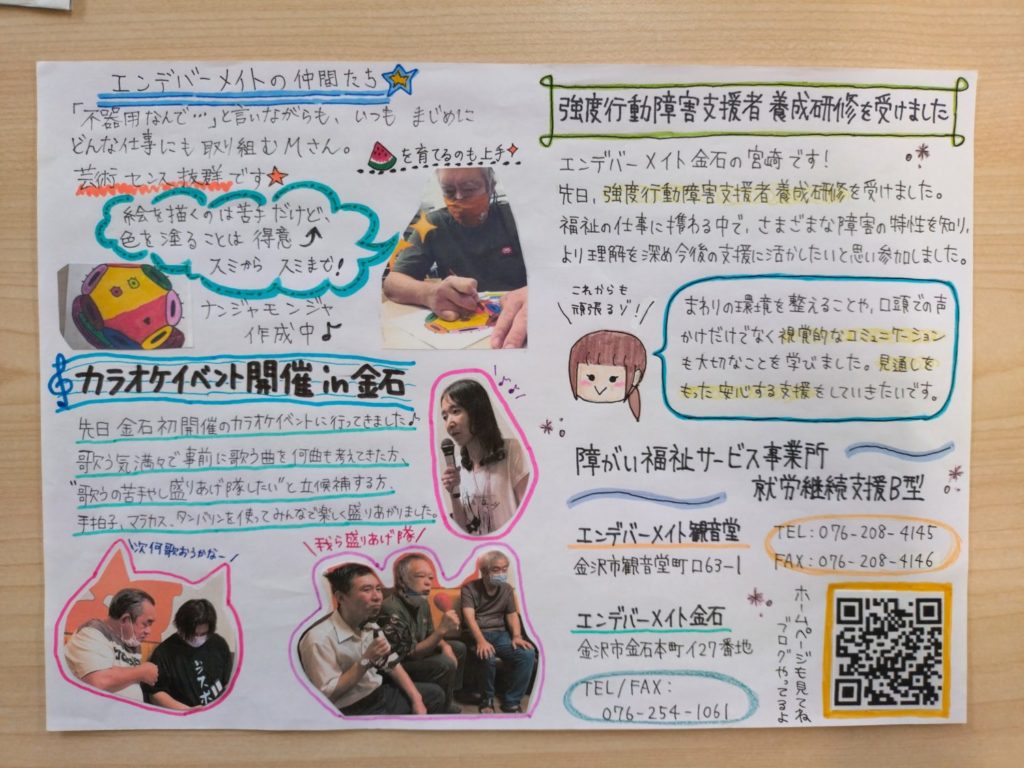 エンデバーメイトの仲間たち
「不器用なんで…」と言いながらも、いつも まじめに
どんな仕事にも取り組むMさん。
を育てるのも上手
芸術センス抜群です
絵を描くのは苦手だけど、
色を塗ることは 得意
スミから スミまで!
ナンジャモンジャ
作成中♪
カラオケイベント開催 in 金石
先日 金石初開催のカラオケイベントに行ってきました♪
歌う気満々で事前に歌う曲を何曲も考えてきた方、
"歌うの苦手やし盛りあげ隊したい"と立候補する方、
手拍子、マラカス、タンバリンを使ってみんなで楽しく盛りあがりました。
次何歌おうかなー
我ら盛りあげ隊
強度行動障害支援者 養成研修を受けました
エンデバーメイト金石の宮崎です!
先日、強度行動障害支援者 養成研修を受けました。
福祉の仕事に携わる中で、さまざまな障害の特性を知り、
より理解を深め今後の支援に活かしたいと思い参加しました。
これからも
頑張るゾ!
まわりの環境を整えることや、口頭での声
かけだけでなく視覚的なコミュニケーション
も大切なことを学びました。見通しを
もった安心する支援をしていきたいです。
障がい福祉サービス事業所
就労継続支援B型
エンデバーメイト観音堂
金沢市観音堂町口63-1
TEL:076-208-4145
FAX:076-208-4146
エンデバーメイト金石
金沢市金石本町イ27番地
TEL/FAX:
076-254-1061
ホームページも見てね
ブログやってるよ